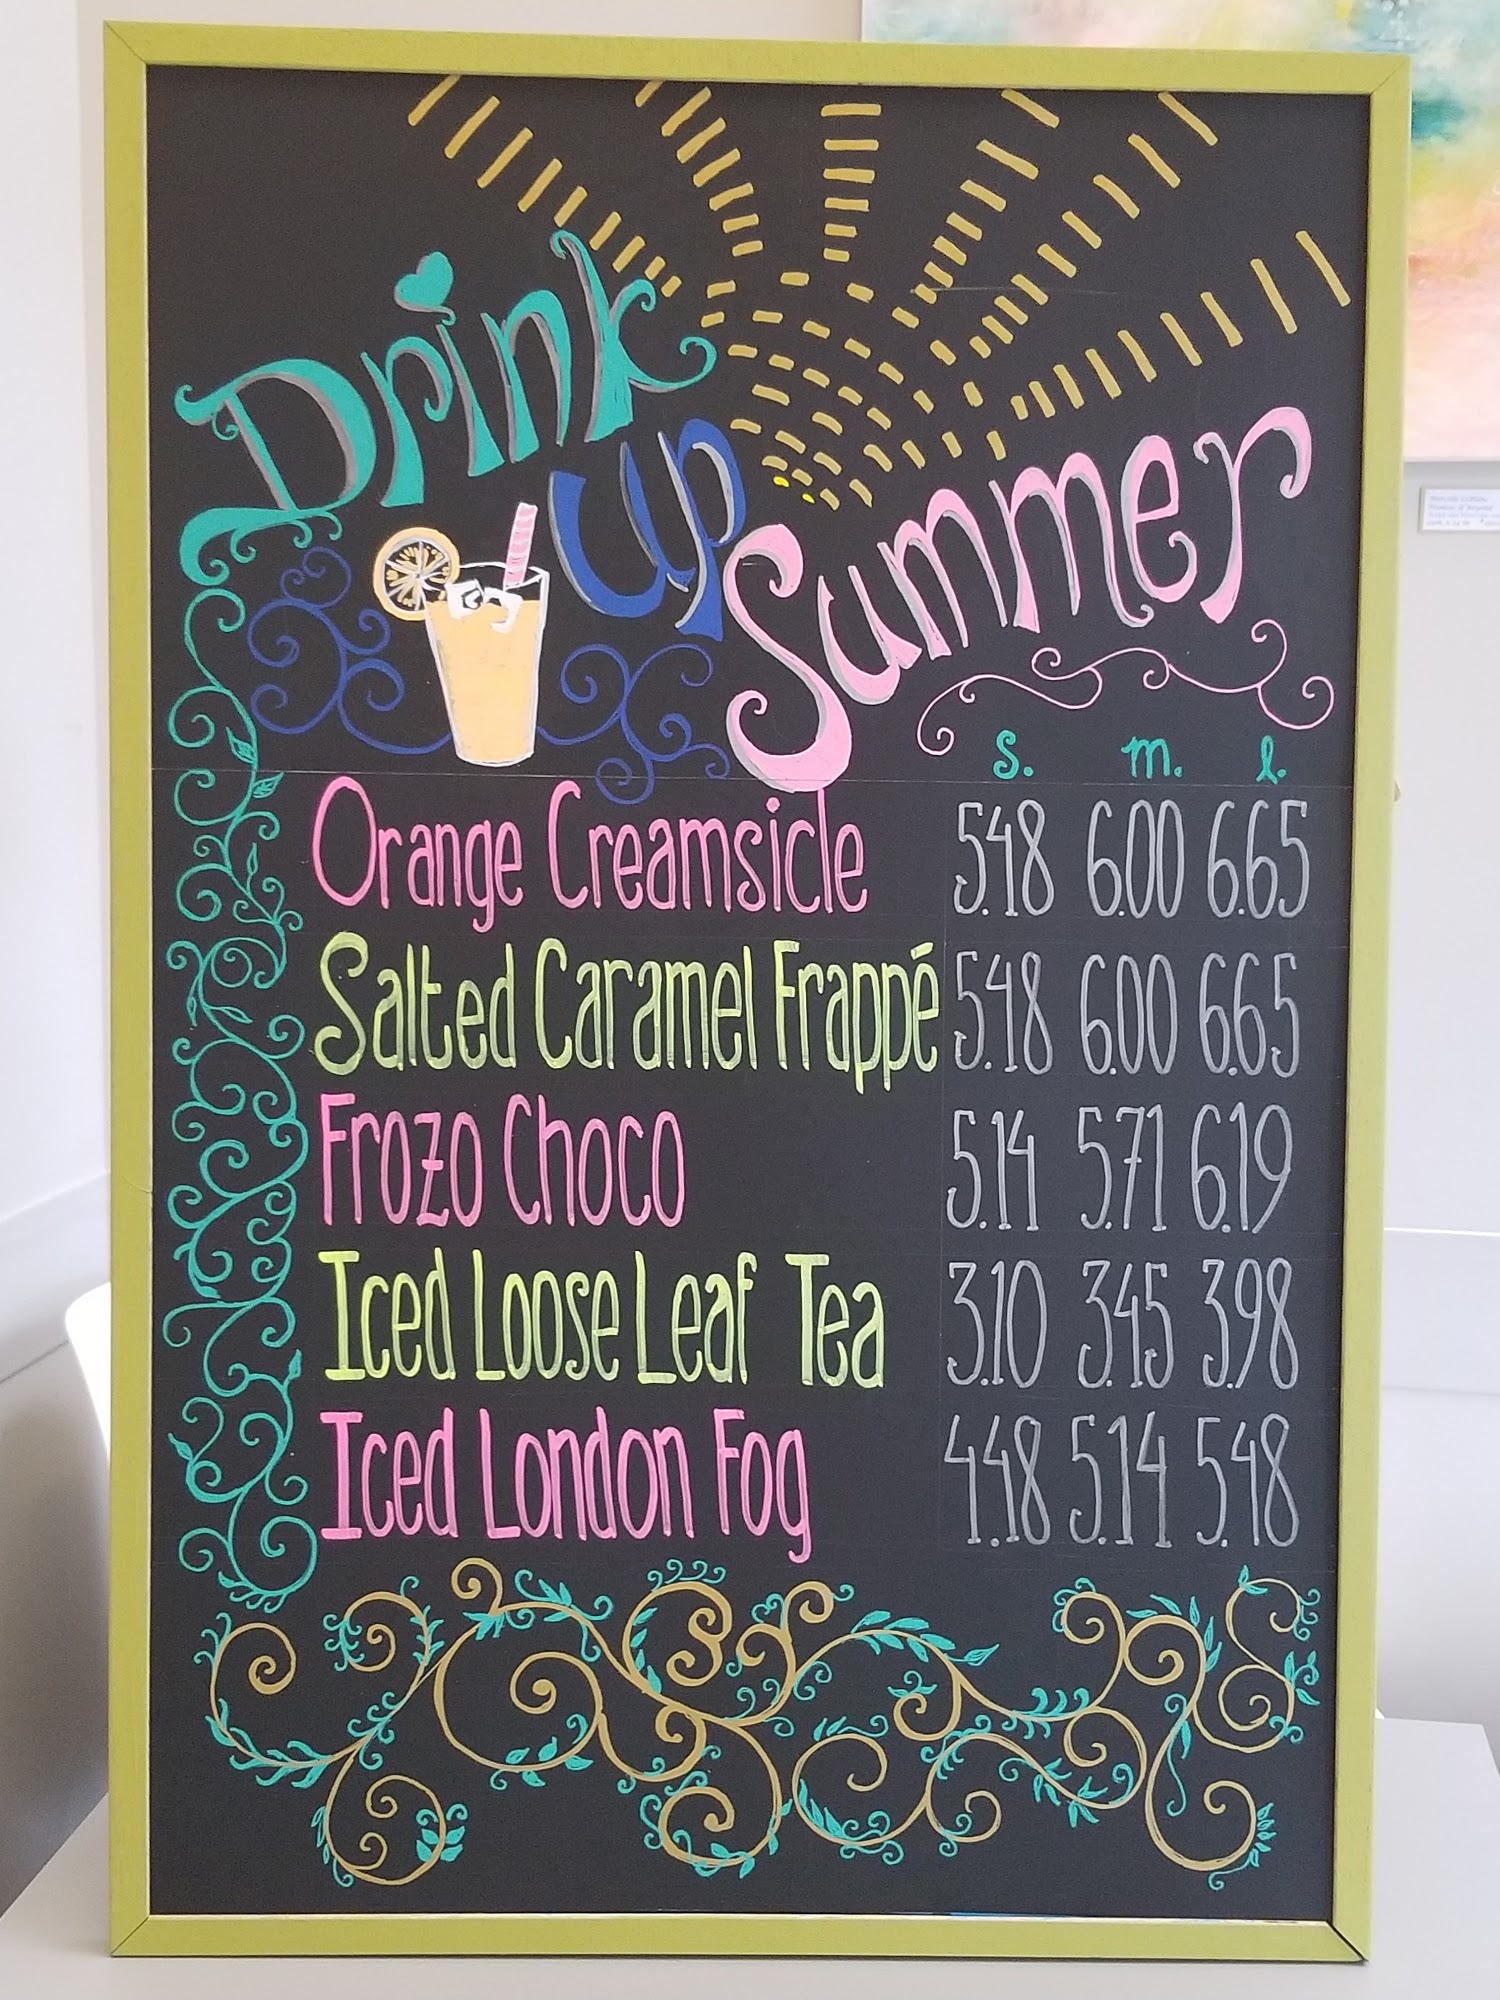 Drink
up
Summer
s. m. l.
Orange Creamsicle 5.48 6.00 6.65
Salted Caramel Frappé 5.48 6.00 6.65
Frozo Choco 5.14 5.71 6.19
Iced Loose Leaf Tea 3.10 3.45 3.98
Iced London Fog 4.48 5.14 5.48